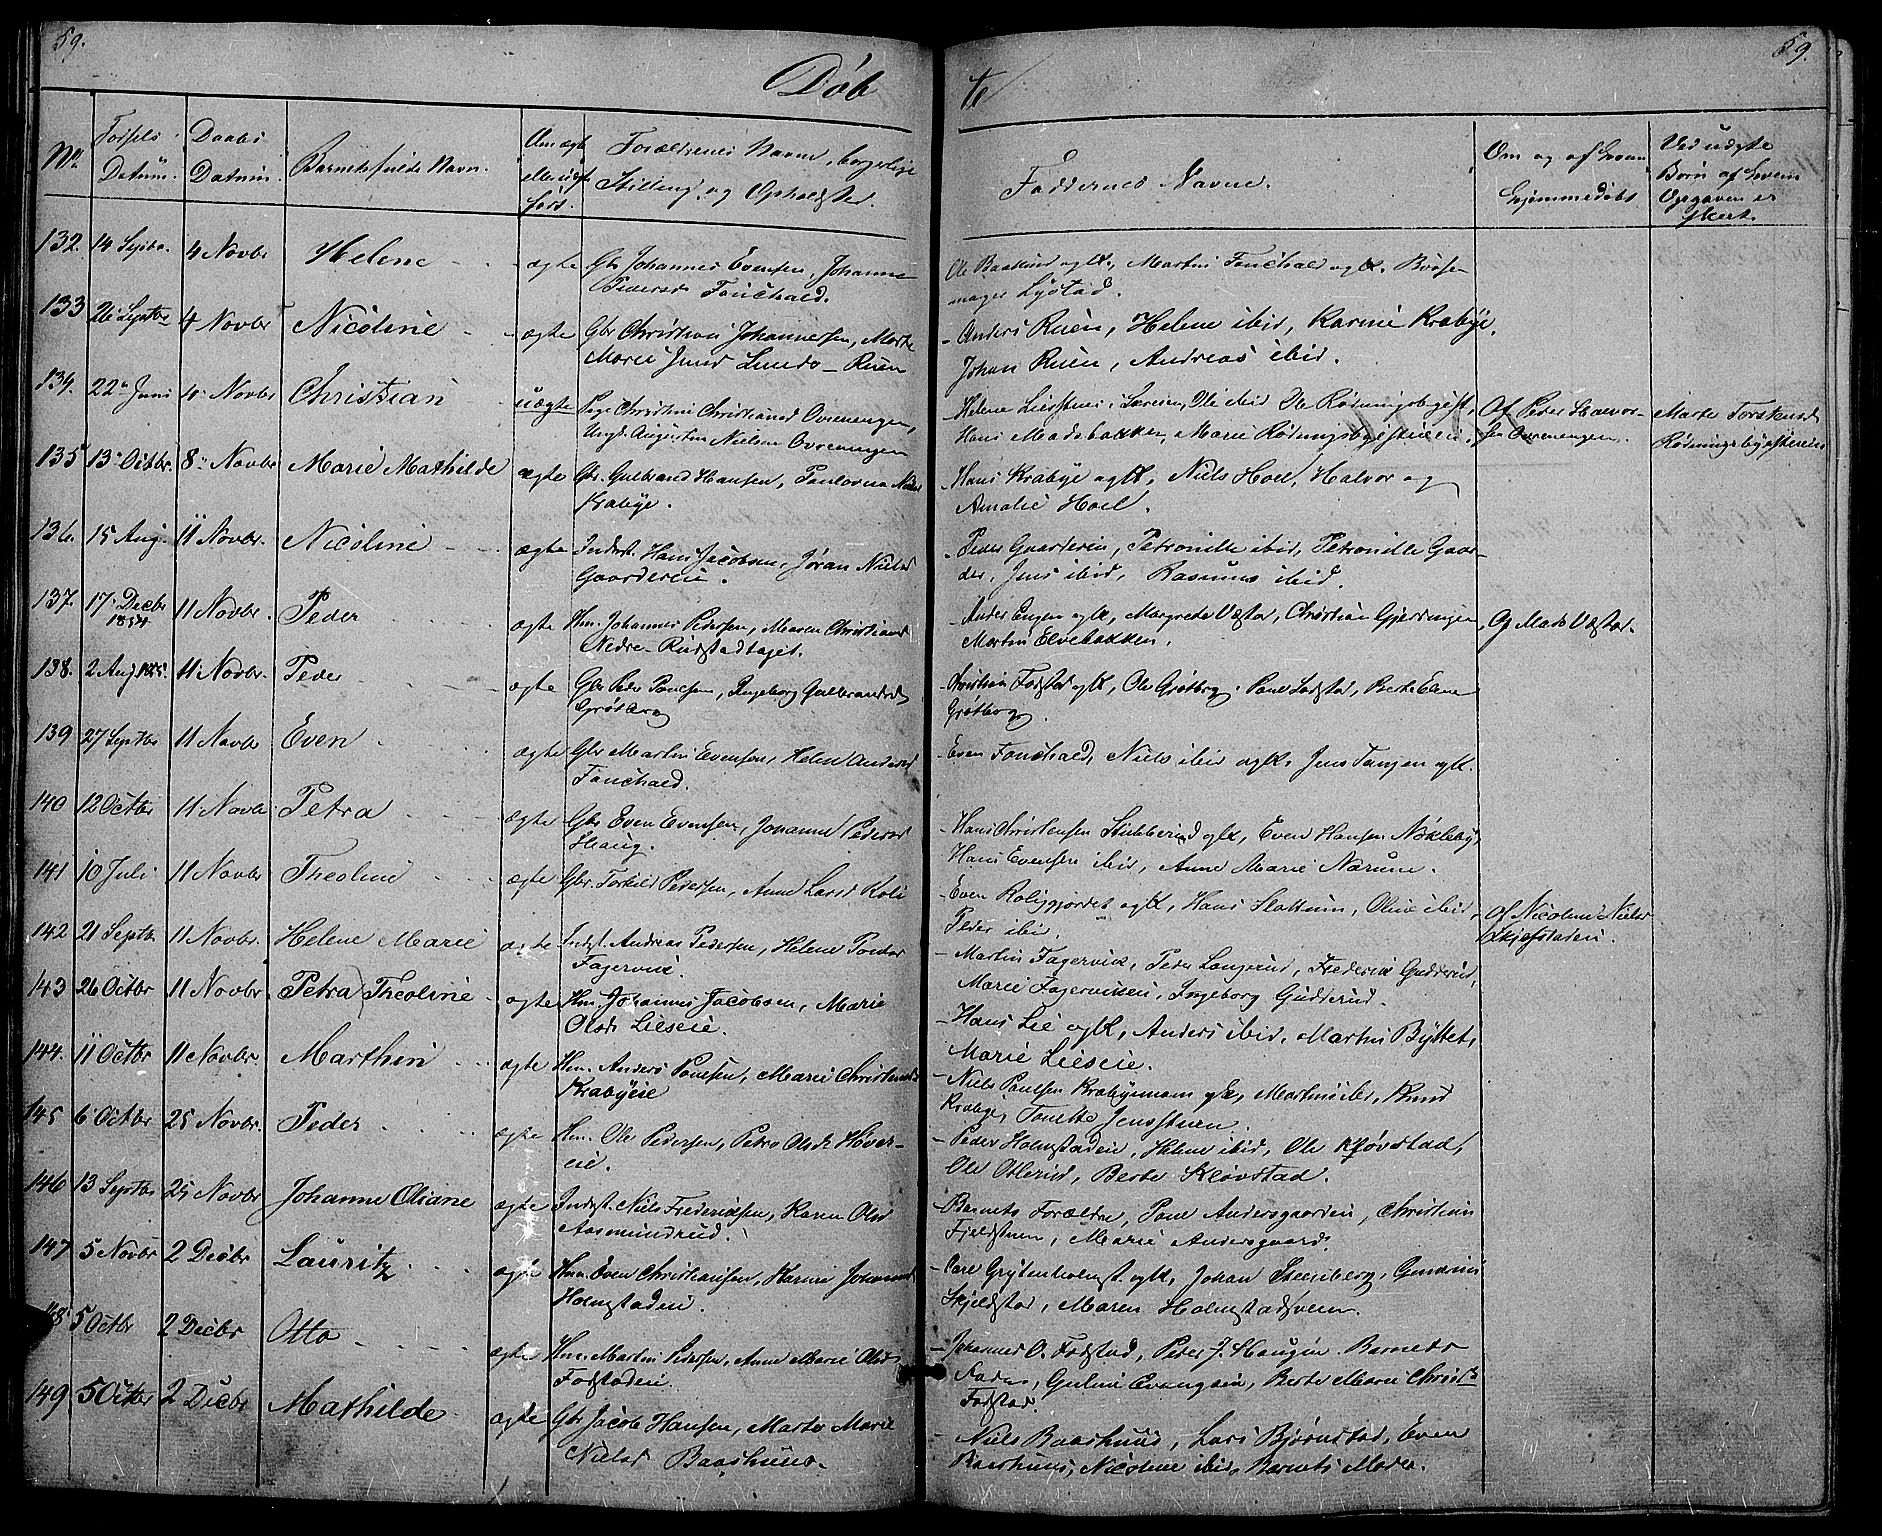 59.
59.
Døb
te
No.
Fødsels
Datum.
Daabs
Datum.
Barnets fulde Navn.
Om ægte
eller uægte
født.
Forældrenes Navne, borgerlige
Stilling, og Opholdsted.
Faddernes Navne.
Om og af hvem
hjemmedøbt
Ved uægte
Børn af hvem
Opgaven er
skeet.
132. 14 Septbr. 4 Novbr Helene ægte Gbr. Johannes Evensen, Johanne
Pedersd Fouchald.
Ole Baakind og K., Martin Fouchald og K. Bøsse-
mager Lystad.
133 26 Septbr 4 Novbr Nicoline ægte Gbr Christian Johannessen, Marthe
Marie Jensd Lunds-Ruen
Anders Ruen, Helene ibid, Karine Krabye,
Johan Ruen, Andreas ibid.
134. 22 Juni 4 Novbr Christian uægte Pige Christine Christiansd Ovrenengen,
Ungk. Augustin Nielsen Ovrenengen
Helene Liestuen, Ole ibid Ole Rødningsbyest.,
Hans Madsbakken, Marie Rødningsbyestuen.
Af Peder Halvor-
sen Ovrenengen.
Marte Torstensd
Rødningsbyestuen
135 13 Octbr. 8 Novbr Marie Mathilde ægte Gbr. Gulbrand Hansen, Paulovna Nielsd
Krabye.
Hans Krabye og K, Niels Hoel, Halvor og
Amalie Hoel.
136. 15 Aug. 11 Novbr. Nicoline ægte Inderst. Hans Jacobsen, Jøran Nielsd
Gaardereie.
Peder Gaardereie, Petronille ibid, Petronille Gaar-
der, Jens ibid, Rasmus ibid.
137. 17 Decbr
1854 11 Novbr. Peder ægte Hm. Johannes Pedersen, Maren Christiansd
Nedre-Rudstadhaget.
Anders Engen og K, Margrete Væstar, Christian Gjerdringen,
Martin Elvebakken.
Og Mads Væstar.
138. 2 Aug 1855. 11 Novbr. Peder ægte Gbr Peder Poulsen, Ingeborg Gulbrandsd
Grøtberg
Christian Fodstad og K, Ole Grøtberg, Poul Fodstad, Berte Elene
Grøtberg.
139 27 Septbr 11 Novbr Even ægte Gbr Martin Evensen, Helene Andersd
Fouchald.
Even Fouchald, Niels ibid og K, Jens Tangen og K.
140 12 Octbr 11 Novbr Petra ægte Gbr Even Evensen, Johanne Pedersd
Haug.
Hans Christensen Stubberud og K, Even Hansen Nøkleby,
Hans Evensen ibid, Anne Marie Narum.
141 10 Juli 11 Novbr Theoline ægte Gbr. Torkild Pedersen, Anne Larsd Roli
Even Roliggjordet og K, Hans Slattum, Oline ibid,
Peder ibi.
Af Nicoline Nielsd
Skjefstadeie.
142 21 Septbr 11 Novbr. Helene Marie ægte Indst. Andreas Pedersen, Helene Poulsd
Fagervik.
Martin Fagervik, Peder Langerud, Frederik Gudderud,
Marie Fagervikeie, Ingeborg Gudderud.
143 26 Octbr 11 Novbr Petra Theoline ægte Hm. Johannes Jacobsen, Marie
Olsdr Lieseie.
Hans Lie og K, Anders ibid, Martin Byttet,
Marie Lieseie.
144. 11 Octbr 11 Novbr. Marthin ægte Hm. Anders Poulsen, Marie Christiansd
Krabyeie
Niels Poulsen Krabyemoen og K, Martin ibi, Knud
Krabye, Tonette Jensstuen.
145 6 Octbr 25 Novbr. Peder ægte Hm. Ole Pedersen, Petra Olsdr Høver-
eie.
Peder Holmstadeie, Helene ibid, Ole Kløvstad,
Ole Otterud, Berte Kløvstad.
146 13 Septbr 25 Novbr Johanne Oliane ægte Indst. Niels Frederiksen, Karen Olsd
Aasmundrud.
Barnets Forældre, Poul Andersgaarden, Christian
Fjeldstuen, Marie Andersgaard.
147 5 Novbr 2 Decbr Lauritz ægte Hm. Even Christiansen, Karine Johannesd
Holmstadeie.
Carl Grytenholmst. og K, Johan Steensberg, Gunerius
Skjelstad, Maren Holmstadsveen.
148. 5 Octbr 2 Decbr Otto ægte Hm. Martin Pedersen, Anne Marie Olsd
Fodstadeie.
Johannes O. Fodstad, Peder J. Haugen. Barnets
Fader, Guline Evangseie, Berte Marie Christ.
Fodstad.
149 5 Octbr 2 Decbr Mathilde ægte Gbr Jacob Hansen, Marte Marie
Nielsd Baashuus.
Niels Baashuus, Lars Bjørnstad, Even
Baashuus, Nicoline ibid, Barnets Moder.